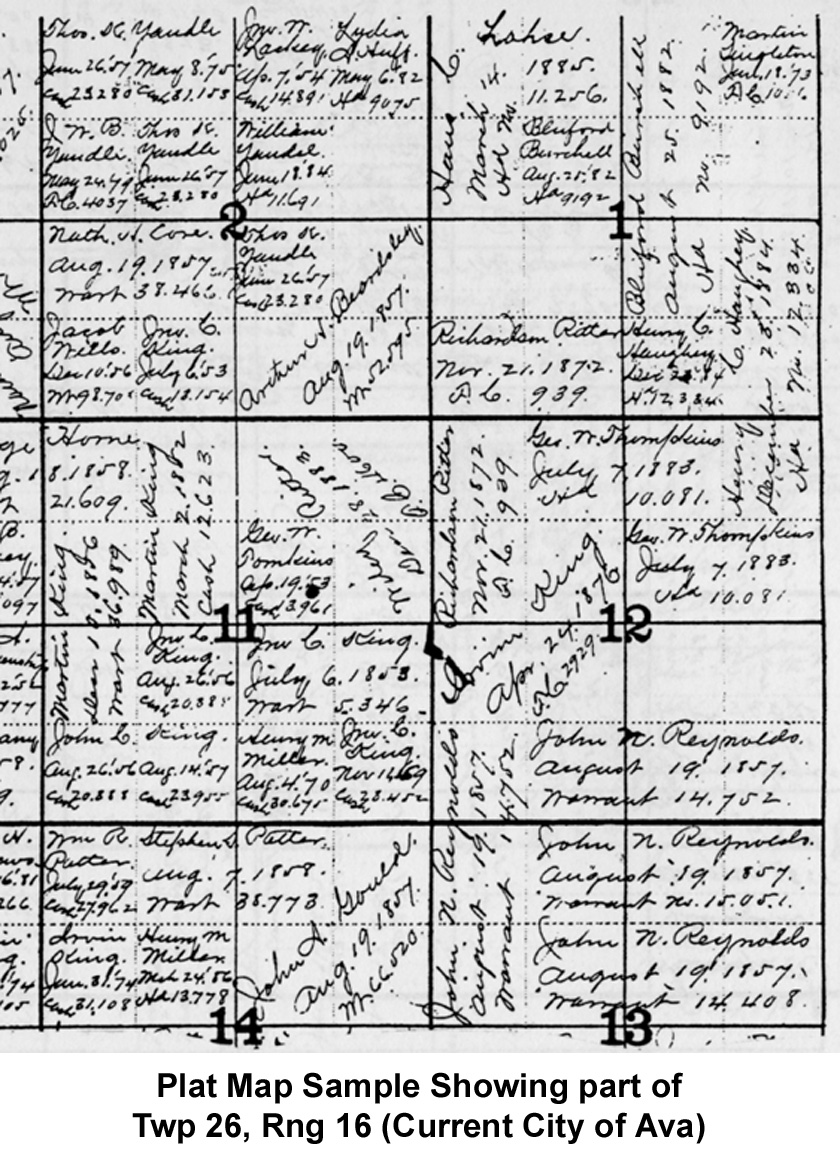 Thos. H. Yandle
June 26.'57 May 8.'75
Cash 23280 Cash 31.153
Jno. W.
Lansey.
Ap. 7.'54
Cash 14.891
Lydia
A. Huff.
May 6.82
Hd 9075
Hans C. Lohse.
March 4. 1885.
Hd No. 11.256.
Martin
Singleton
Jan. 18.73
J. W. B.
Yandle
May 24.79
Thos H.
Yandle
June 26.'57
Cash 23.280
William
Yandel
June 18.84
Hd 11.691
Bluford
Burchell
Aug. 25.'82
Hd 9192
Bluford Burchell
August 25. 1882.
Hd No. 9192.
2
1
Nath. A. Cone.
Aug. 19. 1857
Wart 38.466.
Thos H.
Yandle
June 26.'57
Cash 23.280
Arthur J. Beardsley.
Aug. 19. 1857.
Wt. 52.595
Jacob
Mills.
Dec 10.'56
Jno. C.
King.
July 6.'53
Cash 13.154
Richardson Ritter
Nov. 21. 1872.
F. C. 939.
Henry C.
Haughey
Dec 23.'84
H. 12,334.
Henry C. Haughey
December 23. 1884.
Hd No. 12.334
Home
8. 1858.
21.609.
Martin King
March 2. 1882
Cash 12.623
Martin King
Decr 10. 1856
Wart 36.989.
Geo. W.
Tompkins
Ap. 19.'53
Cash 13.961
Richardson Ritter
Nov. 21. 1872.
F. C. 939
Geo. W. Thompkins
July 7. 1883.
Hd 10.081.
Geo. W. Thompkins
July 7. 1883.
Hd 10.081.
11
12
Jno. C.
King.
Aug. 26.'56
Cash 20.888
Jno C. King.
July 6. 1853.
Wart 5.346.
King
Apr. 24. 1876
F.C. 2929
John C. King.
Aug. 26.'56 Aug. 14.'57
Cash 20.888 Cash 23955
Henry M
Miller
Aug. 4.'70
Cash 30.675
Jno. C.
King
Nov 16.69
Cash 28.452
John N. Reynolds
August 19. 1857.
Warrant 14.752.
John N. Reynolds.
August 19. 1857.
Warrant 14.752.
Wm R.
Patter
July 29.'59
Cash 27.962
Stephen D. Patter.
Aug. 7. 1858.
Wart 38.773
John A. Gould.
Aug. 19. 1857.
Wt. 66.020.
John N. Reynolds.
August 19. 1857.
Warrant
John N. Reynolds.
August 19. 1857.
Warrant No. 15.051.
Irvin
King.
Jan. 31.'74
Cash 31.108
Henry M
Miller
Mch 24.'86
Hd 13.778
John N. Reynolds
August 19. 1857.
Warrant 14.408.
14
13
Plat Map Sample Showing part of
Twp 26, Rng 16 (Current City of Ava)